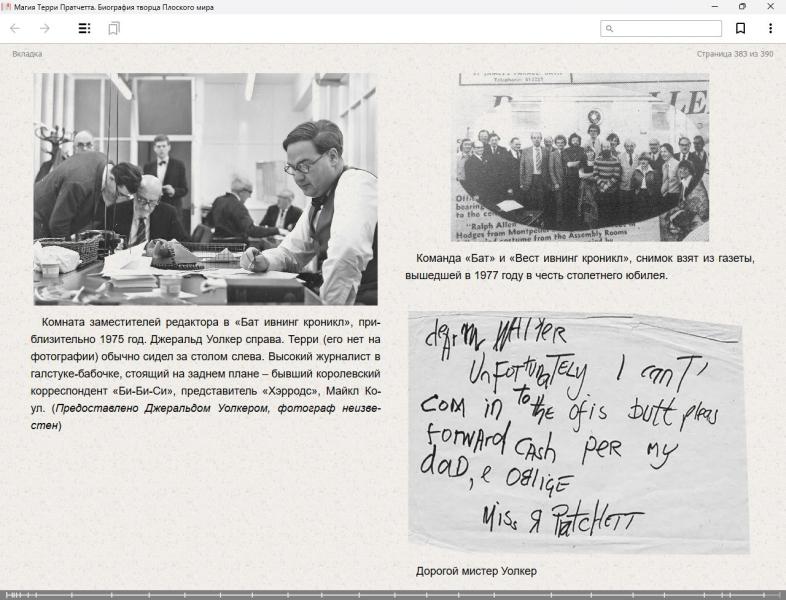 Магия Терри Пратчетта. Биография творца Плоского мира
Вкладка
Страница 383 из 390
Комната заместителей редактора в «Бат ивнинг кроникл», при-
близительно 1975 год. Джеральд Уолкер справа. Терри (его нет на
фотографии) обычно сидел за столом слева. Высокий журналист в
галстуке-бабочке, стоящий на заднем плане – бывший королевский
корреспондент «Би-Би-Си», представитель «Хэрродс», Майкл Ко-
ул. (Предоставлено Джеральдом Уолкером, фотограф неизве-
стен)
bearing
to the
"Ralph Allen"
Hodges from Montpelier
costume from the Assembly Rooms
Команда «Бат» и «Вест ивнинг кроникл», снимок взят из газеты,
вышедшей в 1977 году в честь столетнего юбилея.
dear Mr WALTER
UnFortunately I can't
com in to the ofis butt pleas
forward cash per my
dad, e OBLIGE
Miss R PratcHETT
Дорогой мистер Уолкер